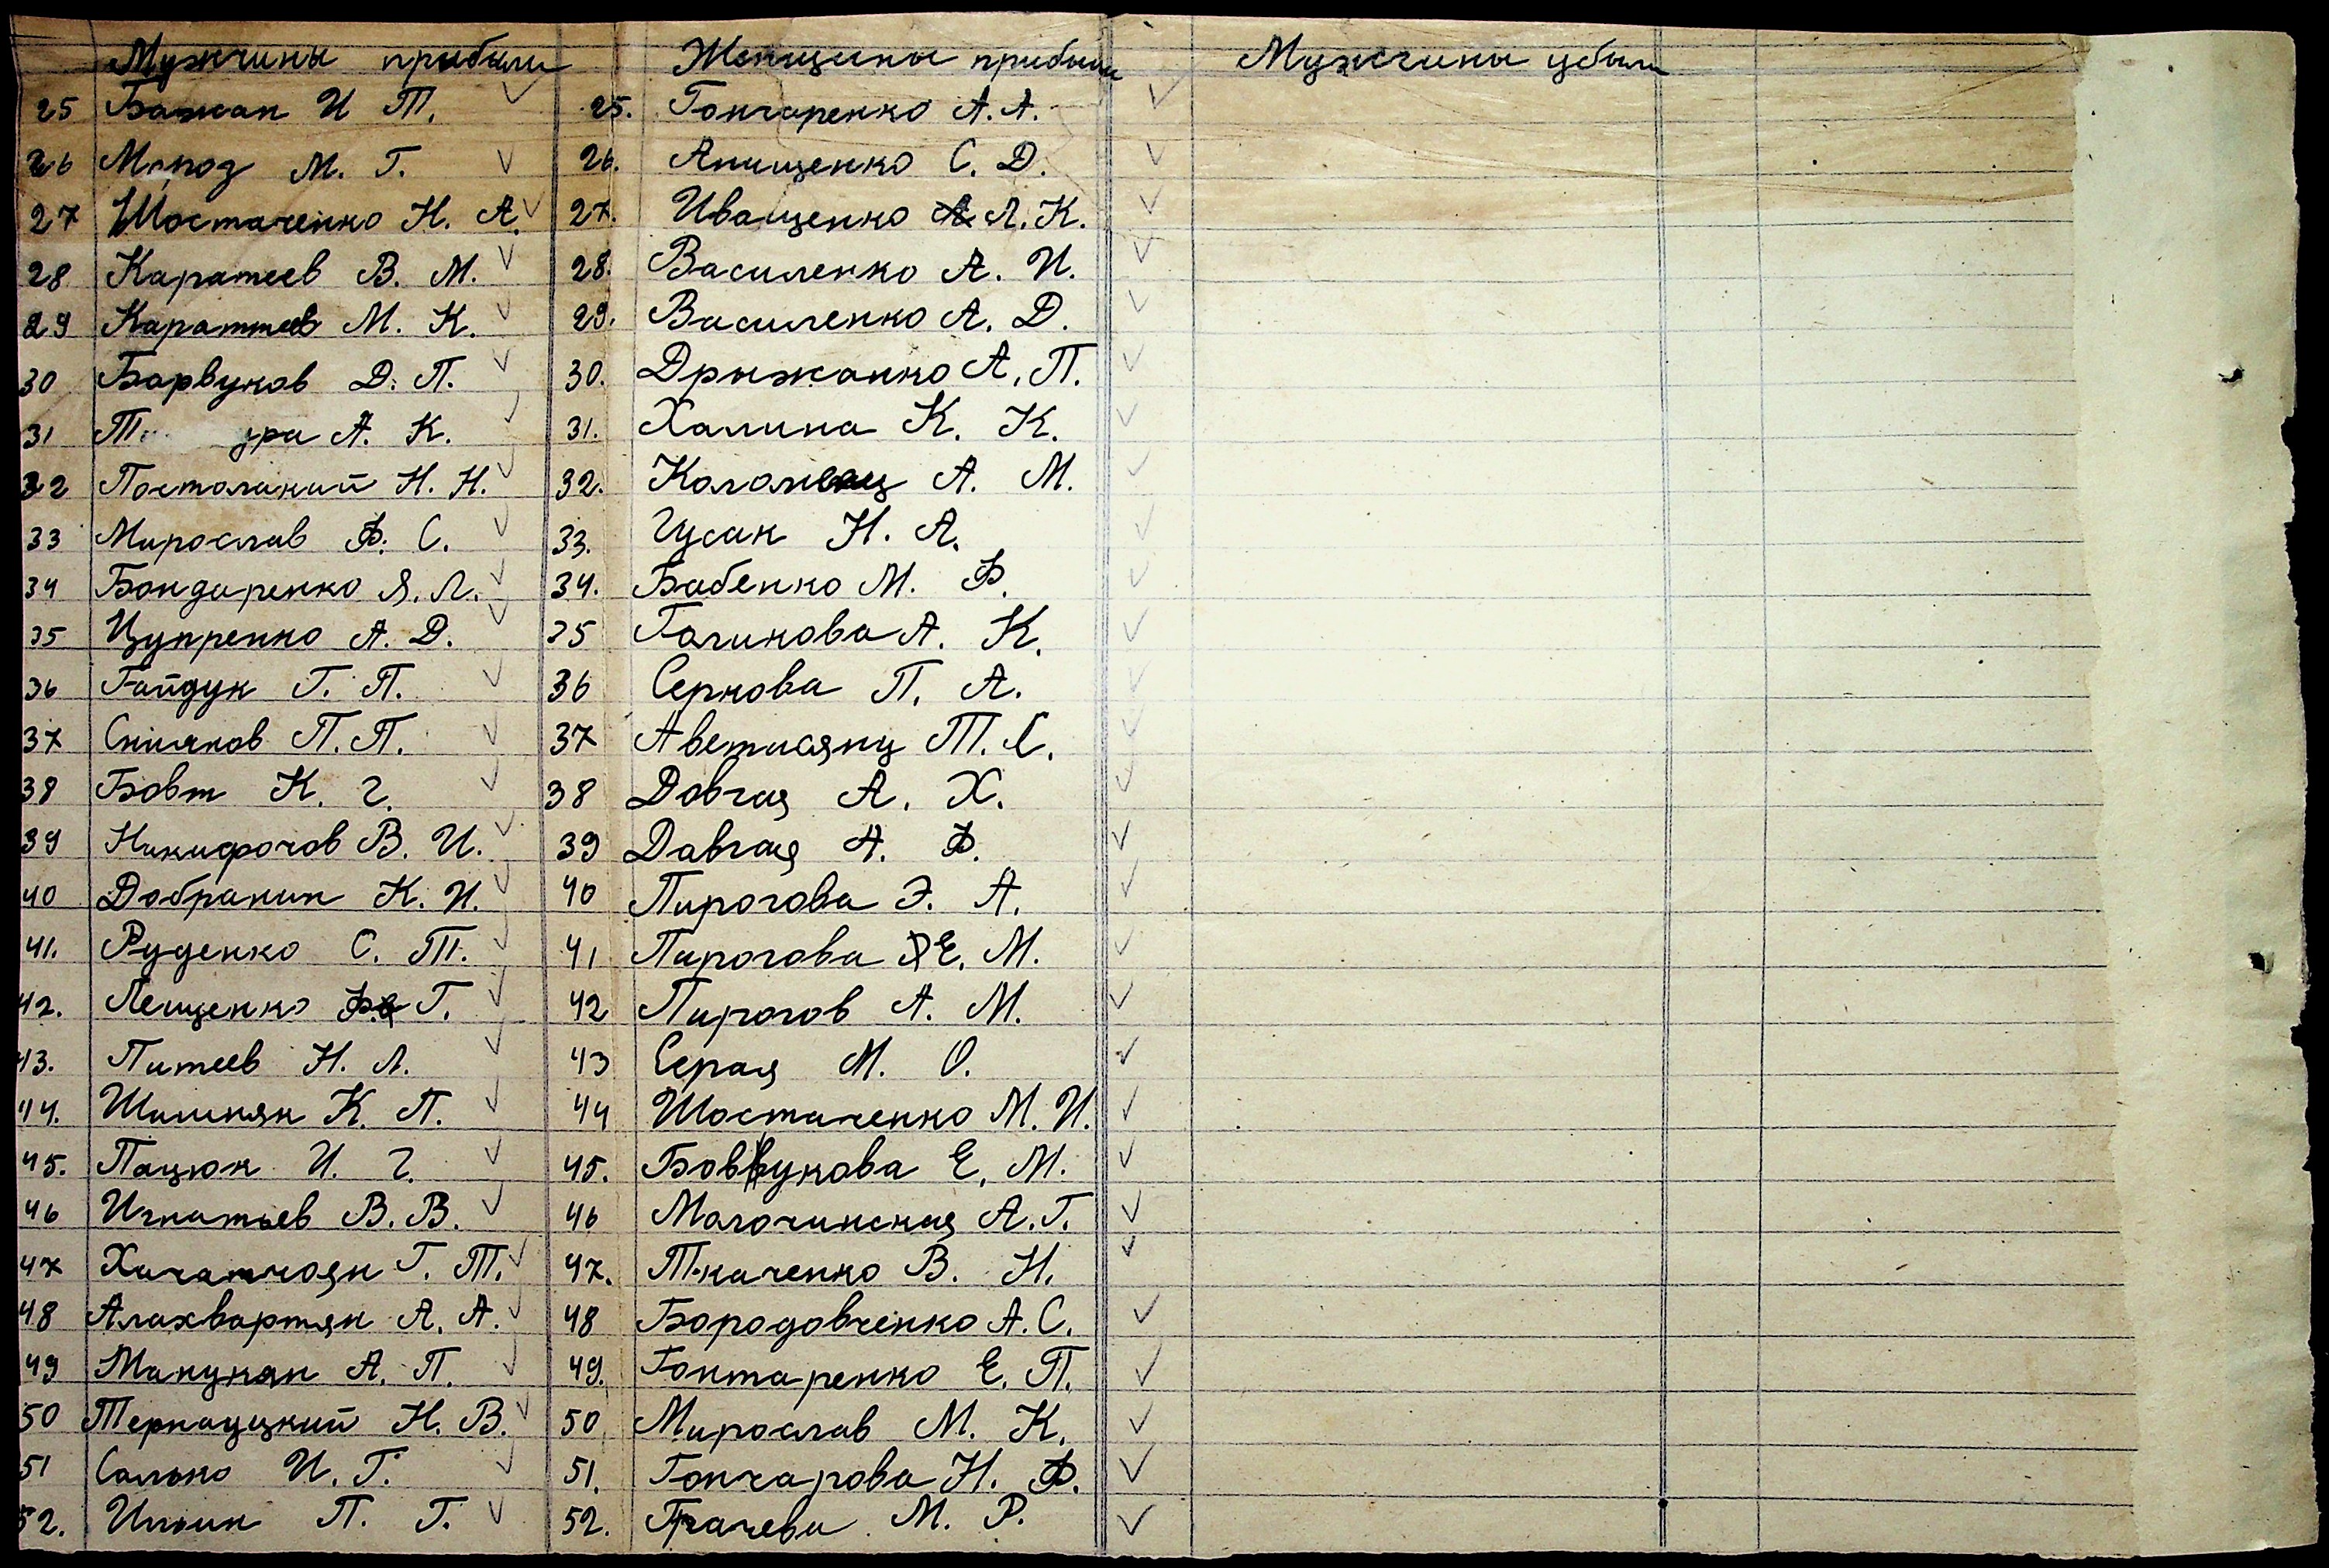 Мужчины прибыли Женщины прибыли Мужчины убыли
25 Бажан И Т. 25. Гончаренко А. А.
26 Мороз М. Г. 26. Анищенко С. Д.
27 Шостаченко Н. А. 27. Иващенко Л. К.
28 Каратеев В. М. 28. Василенко А. И.
29 Каратеев М. К. 29. Василенко А. Д.
30 Борвуков Д. П. 30. Дрыжанко А. П.
31 А. К. 31. Халина К. К.
32 Постолакий Н. Н. 32. А. М.
33 Мирослав Ф. С. 33. Гусак Н. А.
34 Бондаренко Я. Л. 34. Бабенко М. Ф.
35 Цупренко А. Д. 35 Голикова А. К.
36 Гайдук Г. П. 36 Серкова П. А.
37 П. П. 37 Аветисянц Т. С.
38 Бовт К. Г. 38 Довгая А. Х.
39 Никифоров В. И. 39 Давгая А. Ф.
40 Добранин К. И. 40 Пирогова Э. А.
41. Руденко С. Т. 41 Пирогова Е. М.
42. Лещенко Г. 42 Пирогов А. М.
43. Питеев Н. Л. 43 Серая М. О.
44. К. П. 44 Шостаченко М. И.
45. Пацюк И. Г. 45. Е. М.
46 Игнатьев В. В. 46 Молочинская А. Г.
47 Г. Т. 47. Ткаченко В. Н.
48 Алахвартян А. А. 48 Бородовченко А. С.
49 Манукян А. П. 49. Гонтаренко Е. П.
50 Тернацкий Н. В. 50 Мирослав М. К.
51 Салько И. Г. 51. Гончарова Н. Ф.
52. Ильин П. Г. 52. Грачева М. Р.